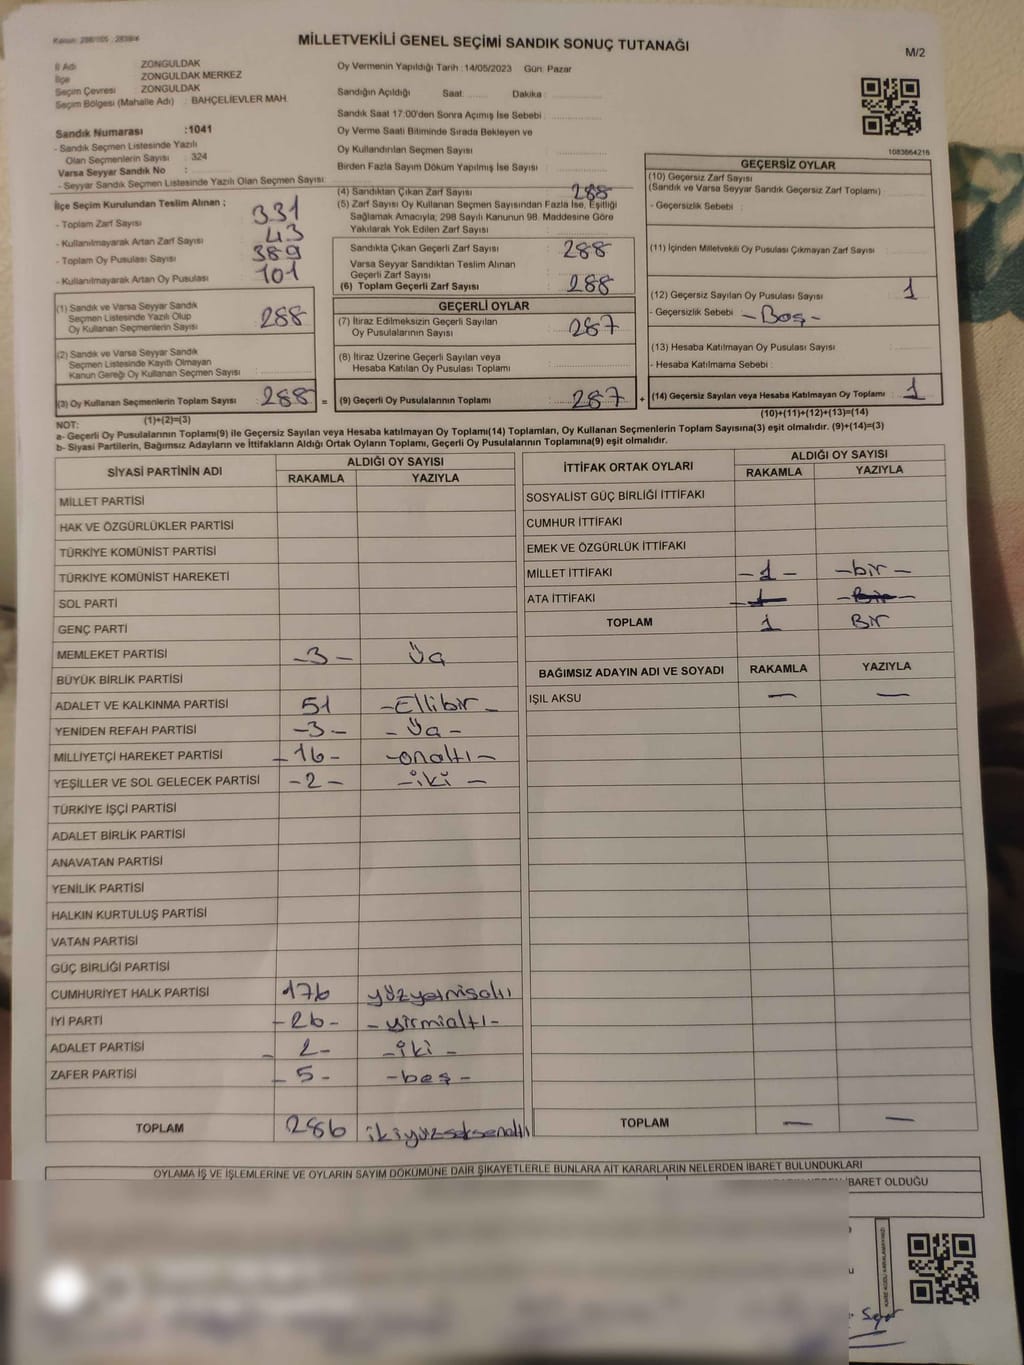 Kanun: 298/105 : 2839/4
MİLLETVEKİLİ GENEL SEÇİMİ SANDIK SONUÇ TUTANAĞI
M/2
İl Adı : ZONGULDAK
İlçe : ZONGULDAK MERKEZ
Seçim Çevresi : ZONGULDAK
Seçim Bölgesi (Mahalle Adı) : BAHÇELİEVLER MAH
Sandık Numarası :1041
- Sandık Seçmen Listesinde Yazılı
Olan Seçmenlerin Sayısı : 324
Varsa Seyyar Sandık No :
- Seyyar Sandık Seçmen Listesinde Yazılı Olan Seçmen Sayısı :
Oy Vermenin Yapıldığı Tarih : 14/05/2023 Gün: Pazar
Sandığın Açıldığı Saat: Dakika :
Sandık Saat 17:00'den Sonra Açımış İse Sebebi :
Oy Verme Saati Bitiminde Sırada Bekleyen ve
Oy Kullandırılan Seçmen Sayısı :
Birden Fazla Sayım Döküm Yapılmış İse Sayısı :
1083664216
İlçe Seçim Kurulundan Teslim Alınan ;
- Toplam Zarf Sayısı : 331
- Kullanılmayarak Artan Zarf Sayısı : 43
- Toplam Oy Pusulası Sayısı : 389
- Kullanılmayarak Artan Oy Pusulası : 101
(1) Sandık ve Varsa Seyyar Sandık
Seçmen Listesinde Yazılı Olup
Oy Kullanan Seçmenlerin Sayısı : 288
(2) Sandık ve Varsa Seyyar Sandık
Seçmen Listesinde Kayıtlı Olmayan
Kanun Gereği Oy Kullanan Seçmen Sayısı :
(3) Oy Kullanan Seçmenlerin Toplam Sayısı : 288 =
(1)+(2)=(3)
(4) Sandıktan Çıkan Zarf Sayısı : 288
(5) Zarf Sayısı Oy Kullanan Seçmen Sayısından Fazla İse, Eşitliği
Sağlamak Amacıyla, 298 Sayılı Kanunun 98. Maddesine Göre
Yakılarak Yok Edilen Zarf Sayısı :
Sandıkta Çıkan Geçerli Zarf Sayısı : 288
Varsa Seyyar Sandıktan Teslim Alınan
Geçerli Zarf Sayısı :
(6) Toplam Geçerli Zarf Sayısı : 288
GEÇERLİ OYLAR
(7) İtiraz Edilmeksizin Geçerli Sayılan
Oy Pusulalarının Sayısı : 287
(8) İtiraz Üzerine Geçerli Sayılan veya
Hesaba Katılan Oy Pusulası Toplamı :
(9) Geçerli Oy Pusulalarının Toplamı : 287 +
GEÇERSİZ OYLAR
(10) Geçersiz Zarf Sayısı
(Sandık ve Varsa Seyyar Sandık Geçersiz Zarf Toplamı) :
- Geçersizlik Sebebi :
(11) İçinden Milletvekili Oy Pusulası Çıkmayan Zarf Sayısı :
(12) Geçersiz Sayılan Oy Pusulası Sayısı : 1
- Geçersizlik Sebebi : - Boş -
(13) Hesaba Katılmayan Oy Pusulası Sayısı :
- Hesaba Katılmama Sebebi :
(14) Geçersiz Sayılan veya Hesaba Katılmayan Oy Toplamı : 1
(10)+(11)+(12)+(13)=(14)
NOT:
a- Geçerli Oy Pusulalarının Toplamı(9) ile Geçersiz Sayılan veya Hesaba katılmayan Oy Toplamı(14) Toplamları, Oy Kullanan Seçmenlerin Toplam Sayısına(3) eşit olmalıdır. (9)+(14)=(3)
b- Siyasi Partilerin, Bağımsız Adayların ve İttifakların Aldığı Ortak Oyların Toplamı, Geçerli Oy Pusulalarının Toplamına(9) eşit olmalıdır.
SİYASİ PARTİNİN ADI ALDIĞI OY SAYISI
RAKAMLA YAZIYLA
MİLLET PARTİSİ
HAK VE ÖZGÜRLÜKLER PARTİSİ
TÜRKİYE KOMÜNİST PARTİSİ
TÜRKİYE KOMÜNİST HAREKETİ
SOL PARTİ
GENÇ PARTİ
MEMLEKET PARTİSİ -3- Üç
BÜYÜK BİRLİK PARTİSİ
ADALET VE KALKINMA PARTİSİ 51 -Ellibir-
YENİDEN REFAH PARTİSİ -3- -Üç-
MİLLİYETÇİ HAREKET PARTİSİ -16- -onaltı-
YEŞİLLER VE SOL GELECEK PARTİSİ -2- -iki-
TÜRKİYE İŞÇİ PARTİSİ
ADALET BİRLİK PARTİSİ
ANAVATAN PARTİSİ
YENİLİK PARTİSİ
HALKIN KURTULUŞ PARTİSİ
VATAN PARTİSİ
GÜÇ BİRLİĞİ PARTİSİ
CUMHURİYET HALK PARTİSİ 176 yüzyetmişaltı
İYİ PARTİ -26- -yirmialtı-
ADALET PARTİSİ -2- -iki-
ZAFER PARTİSİ -5- -beş-
TOPLAM 286 ikiyüzseksenaltı
İTTİFAK ORTAK OYLARI ALDIĞI OY SAYISI
RAKAMLA YAZIYLA
SOSYALİST GÜÇ BİRLİĞİ İTTİFAKI
CUMHUR İTTİFAKI
EMEK VE ÖZGÜRLÜK İTTİFAKI
MİLLET İTTİFAKI -1- -bir-
ATA İTTİFAKI -1- -Bir-
TOPLAM 1 Bir
BAĞIMSIZ ADAYIN ADI VE SOYADI RAKAMLA YAZIYLA
IŞIL AKSU - -
TOPLAM - -
OYLAMA İŞ VE İŞLEMLERİNE VE OYLARIN SAYIM DÖKÜMÜNE DAİR ŞİKAYETLERLE BUNLARA AİT KARARLARIN NELERDEN İBARET BULUNDUKLARI
İBARET OLDUĞU